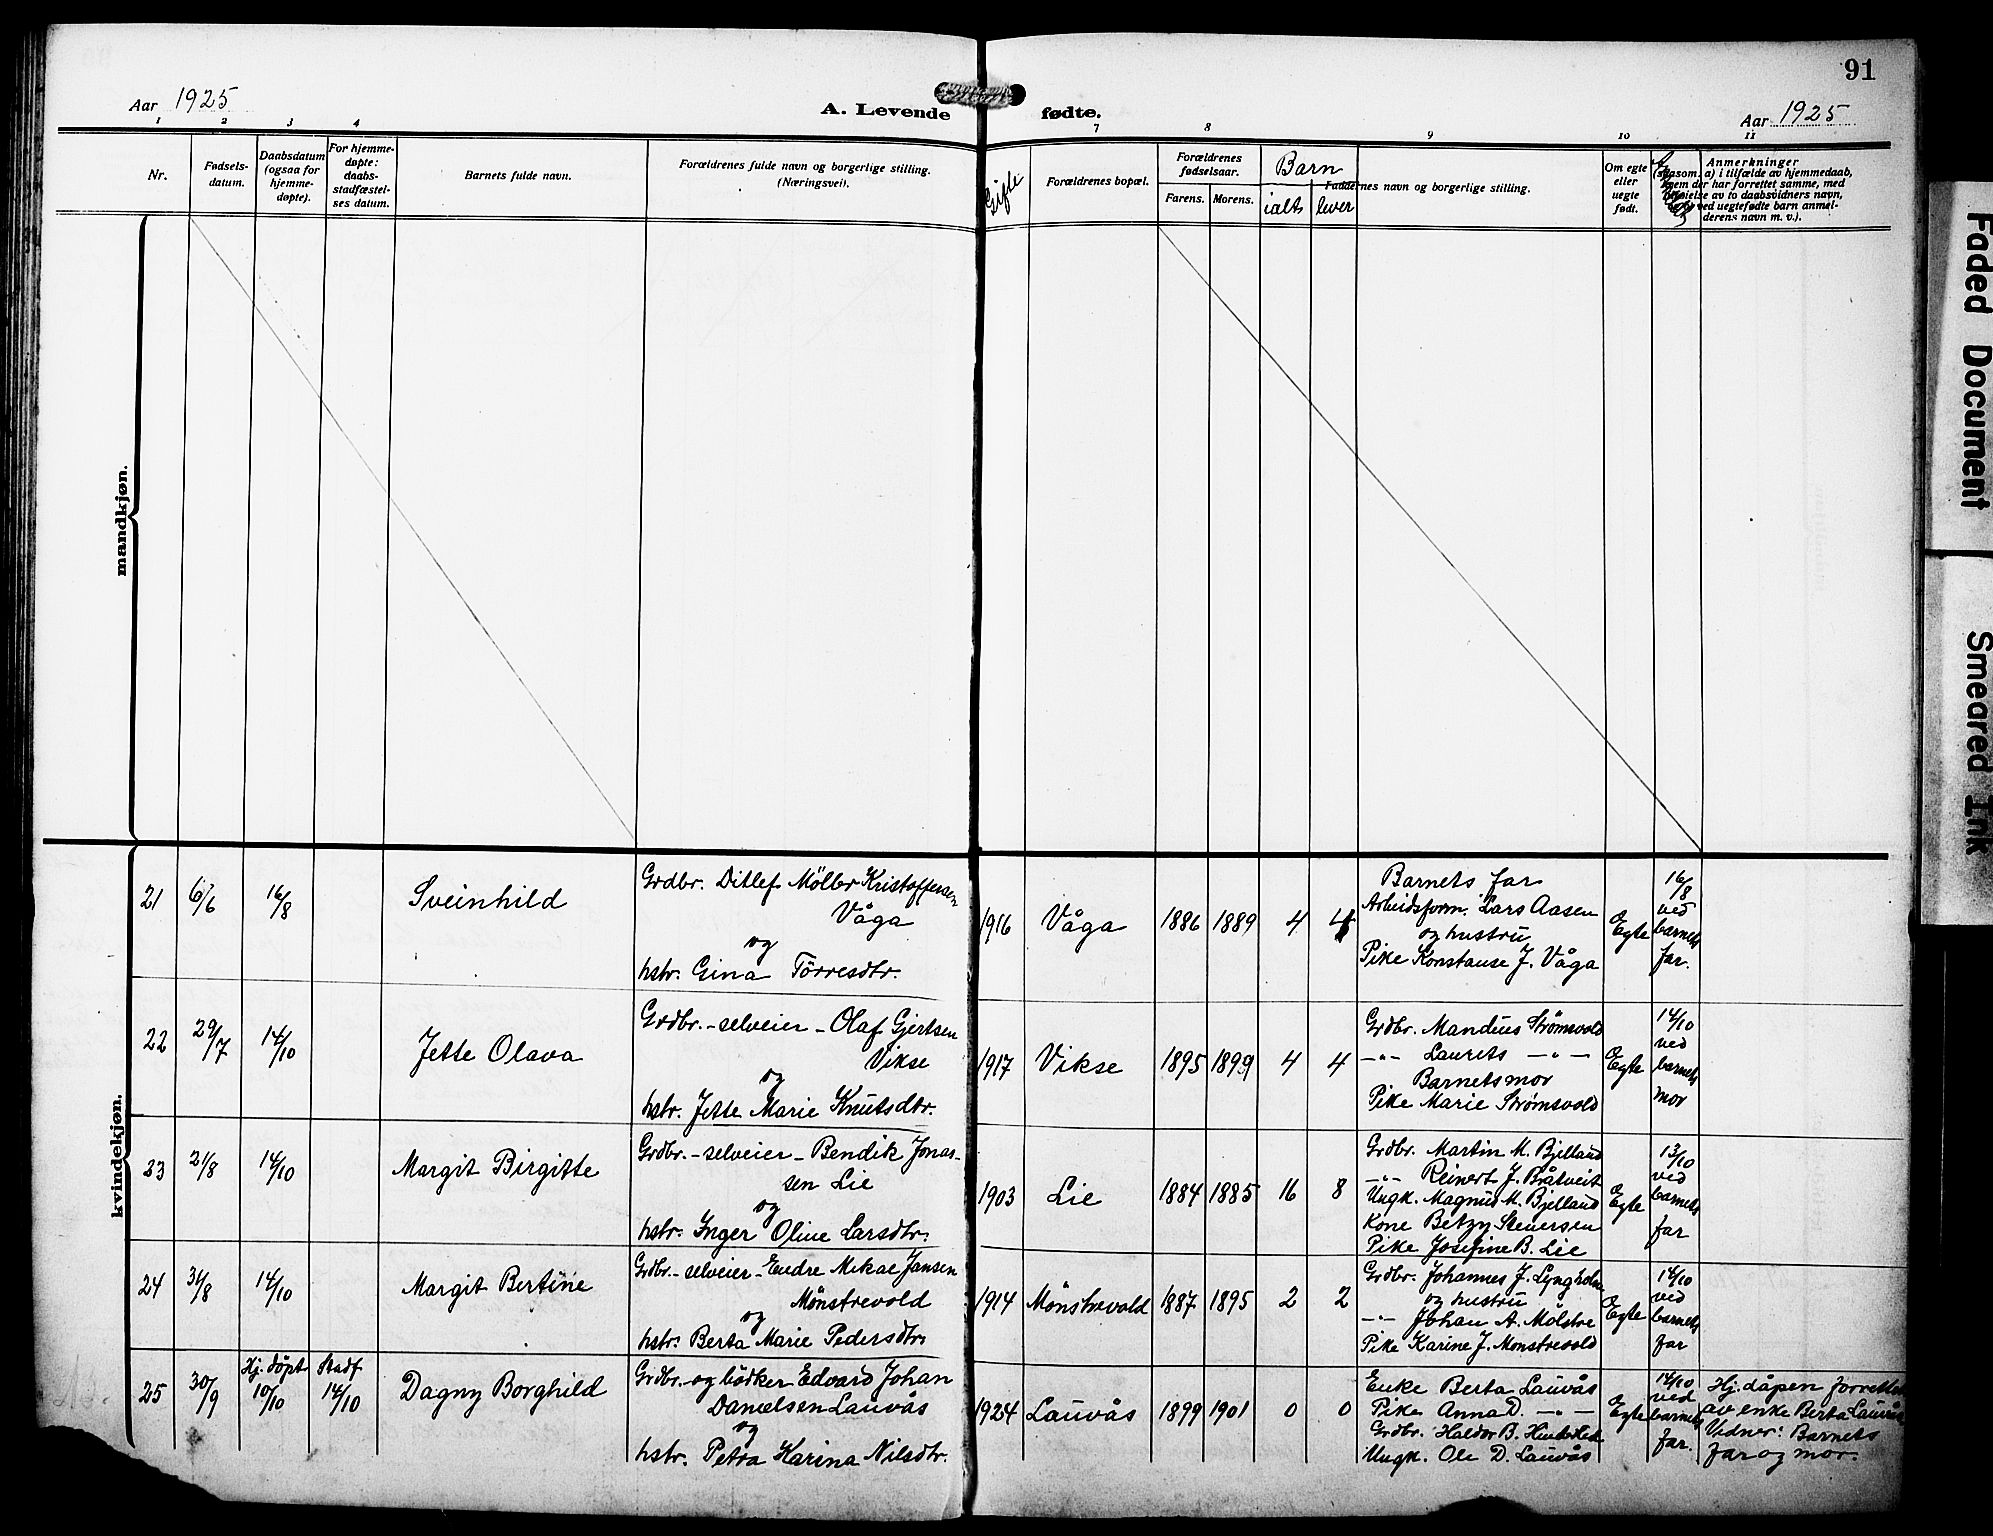 91
Aar 1925
A. Levende fødte.
Aar 1925
1 2 3 4 7 8 9 10 11
Nr.
Fødsels-
datum.
Daabsdatum
(ogsaa for
hjemme-
døpte).
For hjemme-
døpte:
daabs-
stadfæstel-
ses datum.
Barnets fulde navn.
Forældrenes fulde navn og borgerlige stilling.
(Næringsvei).
Gifte
Forældrenes bopæl.
Forældrenes
fødselsaar.
Farens. Morens.
Barn
ialt lever
Faddernes navn og borgerlige stilling.
Om egte
eller
uegte
født.
Anmerkninger
(saasom a) i tilfælde av hjemmedaab,
hvem der har forrettet samme, med
av to daabsvidners navn,
ved uegtefødte barn anmel-
derens navn m. v.).
mandkjøn.
kvindekjøn.
21 6/6 16/8 Sveinhild
Grdbr. Ditlef Möller Kristoffersen
Våga
og
hstr. Gina Törresdtr.
1916 Våga 1886 1889 4 4
Barnets far
Arbeidsform. Lars Aasen
og hustru
Pike Konstanse J. Våga
Egte
16/8
ved
barnets
far.
22 29/7 14/10 Jette Olava
Grdbr. - selveier - Olaf Gjertsen
Vikse
og
hstr. Jette Marie Knutsdtr.
1917 Vikse 1895 1899 4 4
Grdbr. Mandius Strømsvold
—"— Laurets —"—
Barnets mor
Pike Marie Strømsvold
Egte
14/10
ved
barnets
mor
23 21/8 14/10 Margit Birgitte
Grdbr. - selveier - Bendik Jonas-
sen Lie
og
hstr. Inger Oline Larsdtr.
1903 Lie 1884 1885 16 8
Grdbr. Martin M. Bjelland
—"— Reinert J. Bråtveit
Ungk. Magnus M. Bjelland
Kone Betzy Stenersen
Pike Josefine B. Lie
Egte
13/10
ved
barnets
far
24 31/8 14/10 Margit Bertine
Grdbr. - selveier - Endre Mikal Jansen
Mönstrevold
og
hstr. Berta Marie Pedersdtr.
1914 Mönstrevold 1887 1895 2 2
Grdbr. Johannes J. Lyngholm
og hustru
—"— Johan A. Mölstre
Pike Karine J. Monstrevold
Egte
14/10
ved
barnets
far
25 30/9 Hj. döpt 10/10 Stadf. 14/10 Dagny Borghild
Grdbr. og bödker Edvard Johan
Danielsen Lauvås
og
hstr. Petra Karina Nilsdtr.
1924 Lauvås 1899 1901 0 0
Enke Berta Lauvås
Pike Anna D. —"—
Grdbr. Haldor B.
Ungk. Ole D. Lauvås
Egte
14/10
ved
barnets
far.
Hj. dåpen forrettet
av enke Berta Lauvås
Vidner: Barnets
far og mor.
Faded Document
Smeared Ink